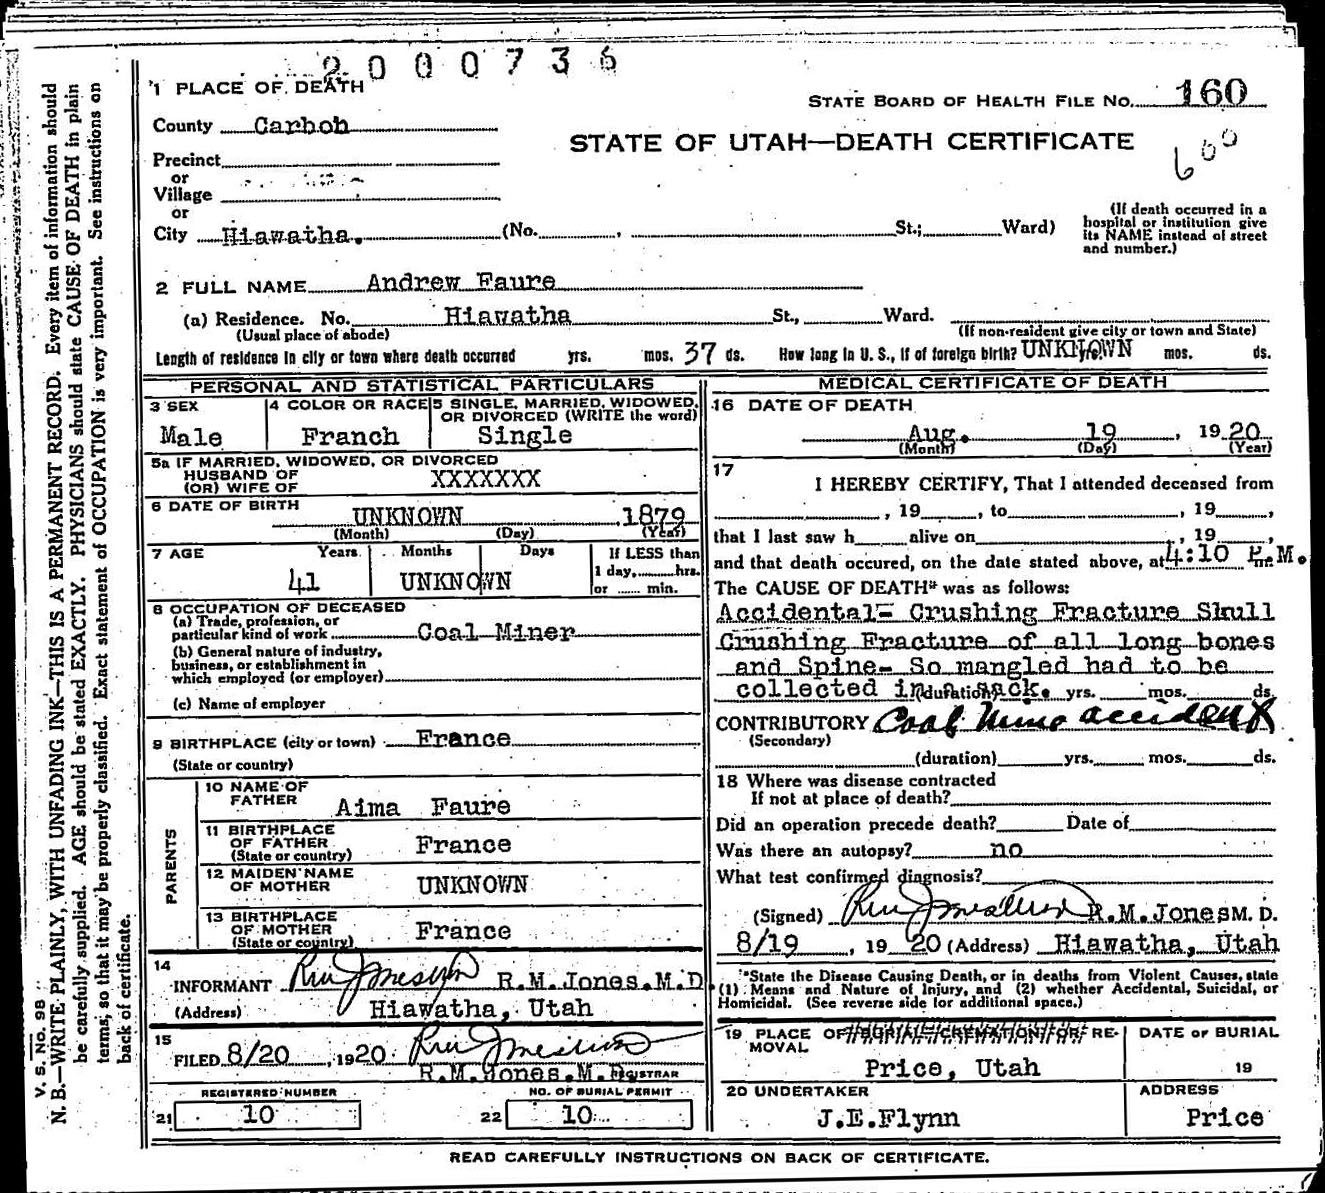 2000736
1 PLACE OF DEATH
STATE BOARD OF HEALTH FILE No. 160
County Carbon
STATE OF UTAH—DEATH CERTIFICATE
600
Precinct
or
Village
or
City Hiawatha. (No. , St.; Ward)
(If death occurred in a
hospital or institution give
its NAME instead of street
and number.)
2 FULL NAME Andrew Faure
(a) Residence. No. Hiawatha St., Ward.
(Usual place of abode)
(If non-resident give city or town and State)
Length of residence in city or town where death occurred yrs. mos. 37 ds. How long in U. S., if of foreign birth? UNKNOWN yrs. mos. ds.
PERSONAL AND STATISTICAL PARTICULARS
3 SEX
Male
4 COLOR OR RACE
Franch
5 SINGLE, MARRIED, WIDOWED,
OR DIVORCED (WRITE the word)
Single
5a IF MARRIED, WIDOWED, OR DIVORCED
HUSBAND OF
(OR) WIFE OF
XXXXXXX
6 DATE OF BIRTH
UNKNOWN 1879
(Month) (Day) (Year)
7 AGE Years Months Days
41 UNKNOWN
If LESS than
1 day, hrs.
or min.
8 OCCUPATION OF DECEASED
(a) Trade, profession, or
particular kind of work Coal Miner
(b) General nature of industry,
business, or establishment in
which employed (or employer)
(c) Name of employer
9 BIRTHPLACE (city or town) France
(State or country)
PARENTS
10 NAME OF
FATHER Aima Faure
11 BIRTHPLACE
OF FATHER France
(State or country)
12 MAIDEN NAME
OF MOTHER UNKNOWN
13 BIRTHPLACE
OF MOTHER France
(State or country)
14
INFORMANT R.M.Jones.M.D.
(Address) Hiawatha, Utah
15
FILED 8/20, 1920.
R.M.Jones.M.D. REGISTRAR
REGISTERED NUMBER
21 10
NO. OF BURIAL PERMIT
22 10
MEDICAL CERTIFICATE OF DEATH
16 DATE OF DEATH
Aug. 19, 1920
(Month) (Day) (Year)
17
I HEREBY CERTIFY, That I attended deceased from
, 19 , to , 19 ,
that I last saw h alive on , 19 ,
and that death occured, on the date stated above, at 4:10 P.M.
The CAUSE OF DEATH* was as follows:
Accidental- Crushing Fracture Skull
Crushing Fracture of all long bones
and Spine- So mangled had to be
collected in a sack.
(duration) yrs. mos. ds.
CONTRIBUTORY Coal Mine accident
(Secondary)
(duration) yrs. mos. ds.
18 Where was disease contracted
If not at place of death?
Did an operation precede death? Date of
Was there an autopsy? no
What test confirmed diagnosis?
(Signed) R.M.Jones M. D.
8/19, 1920 (Address) Hiawatha, Utah
*State the Disease Causing Death, or in deaths from Violent Causes, state
(1) Means and Nature of Injury, and (2) whether Accidental, Suicidal, or
Homicidal. (See reverse side for additional space.)
19 PLACE OF BURIAL, CREMATION, OR RE-
MOVAL
Price, Utah
DATE OF BURIAL
19
20 UNDERTAKER
J.E.Flynn
ADDRESS
Price
READ CAREFULLY INSTRUCTIONS ON BACK OF CERTIFICATE.
V. S. No. 98
N. B.—WRITE PLAINLY, WITH UNFADING INK—THIS IS A PERMANENT RECORD. Every item of information should
be carefully supplied. AGE should be stated EXACTLY. PHYSICIANS should state CAUSE OF DEATH in plain
terms, so that it may be properly classified. Exact statement of OCCUPATION is very important. See instructions on
back of certificate.